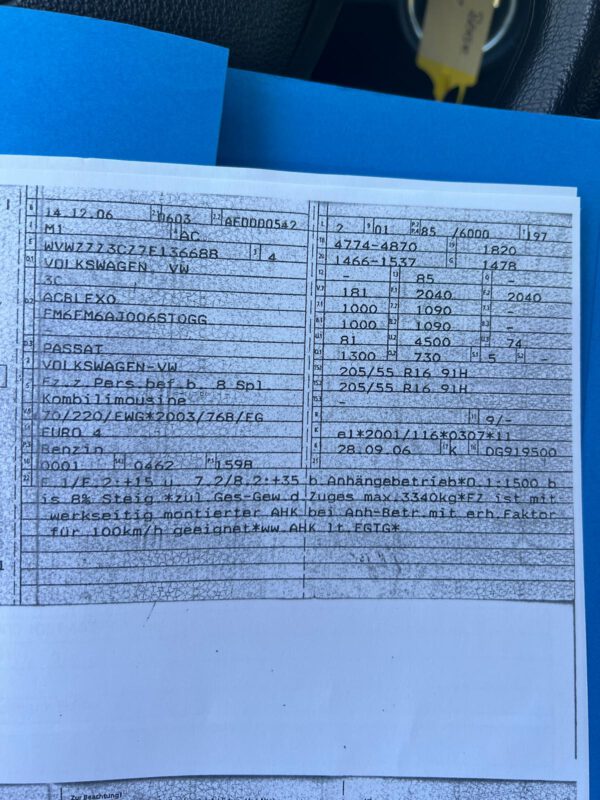 14.12.06 0603 AEO000542
M1 AC
WVWZZZ3CZ7E136688 4
VOLKSWAGEN, VW
3C
ACBLFX0
FM6FM6AJ006STOGG
PASSAT
VOLKSWAGEN-VW
Fz.z.Pers.bef.b. 8 Spl
Kombilimousine
70/220/EWG*2003/76B/EG
EURO 4
Benzin
0001 0462 1598
2 01 85 /6000 197
4774-4870 1820
1466-1537 1478
- 85 -
181 2040 2040
1000 1090 -
1000 1090 -
81 4500 74
1300 730 5 -
205/55 R16 91H
205/55 R16 91H
-
9/-
e1*2001/116*0307*11
28.09.06 K DG919500
F.1/F.2:+15 u. 7.2/8.2:+35 b.Anhängebetrieb*O.1:1500 b
is 8% Steig.*zul.Ges-Gew.d.Zuges max.3340kg*FZ ist mit
werkseitig montierter AHK bei Anh-Betr.mit erh.Faktor
für 100km/h geeignet*ww.AHK lt.EGTG*
Zur Beachtung!